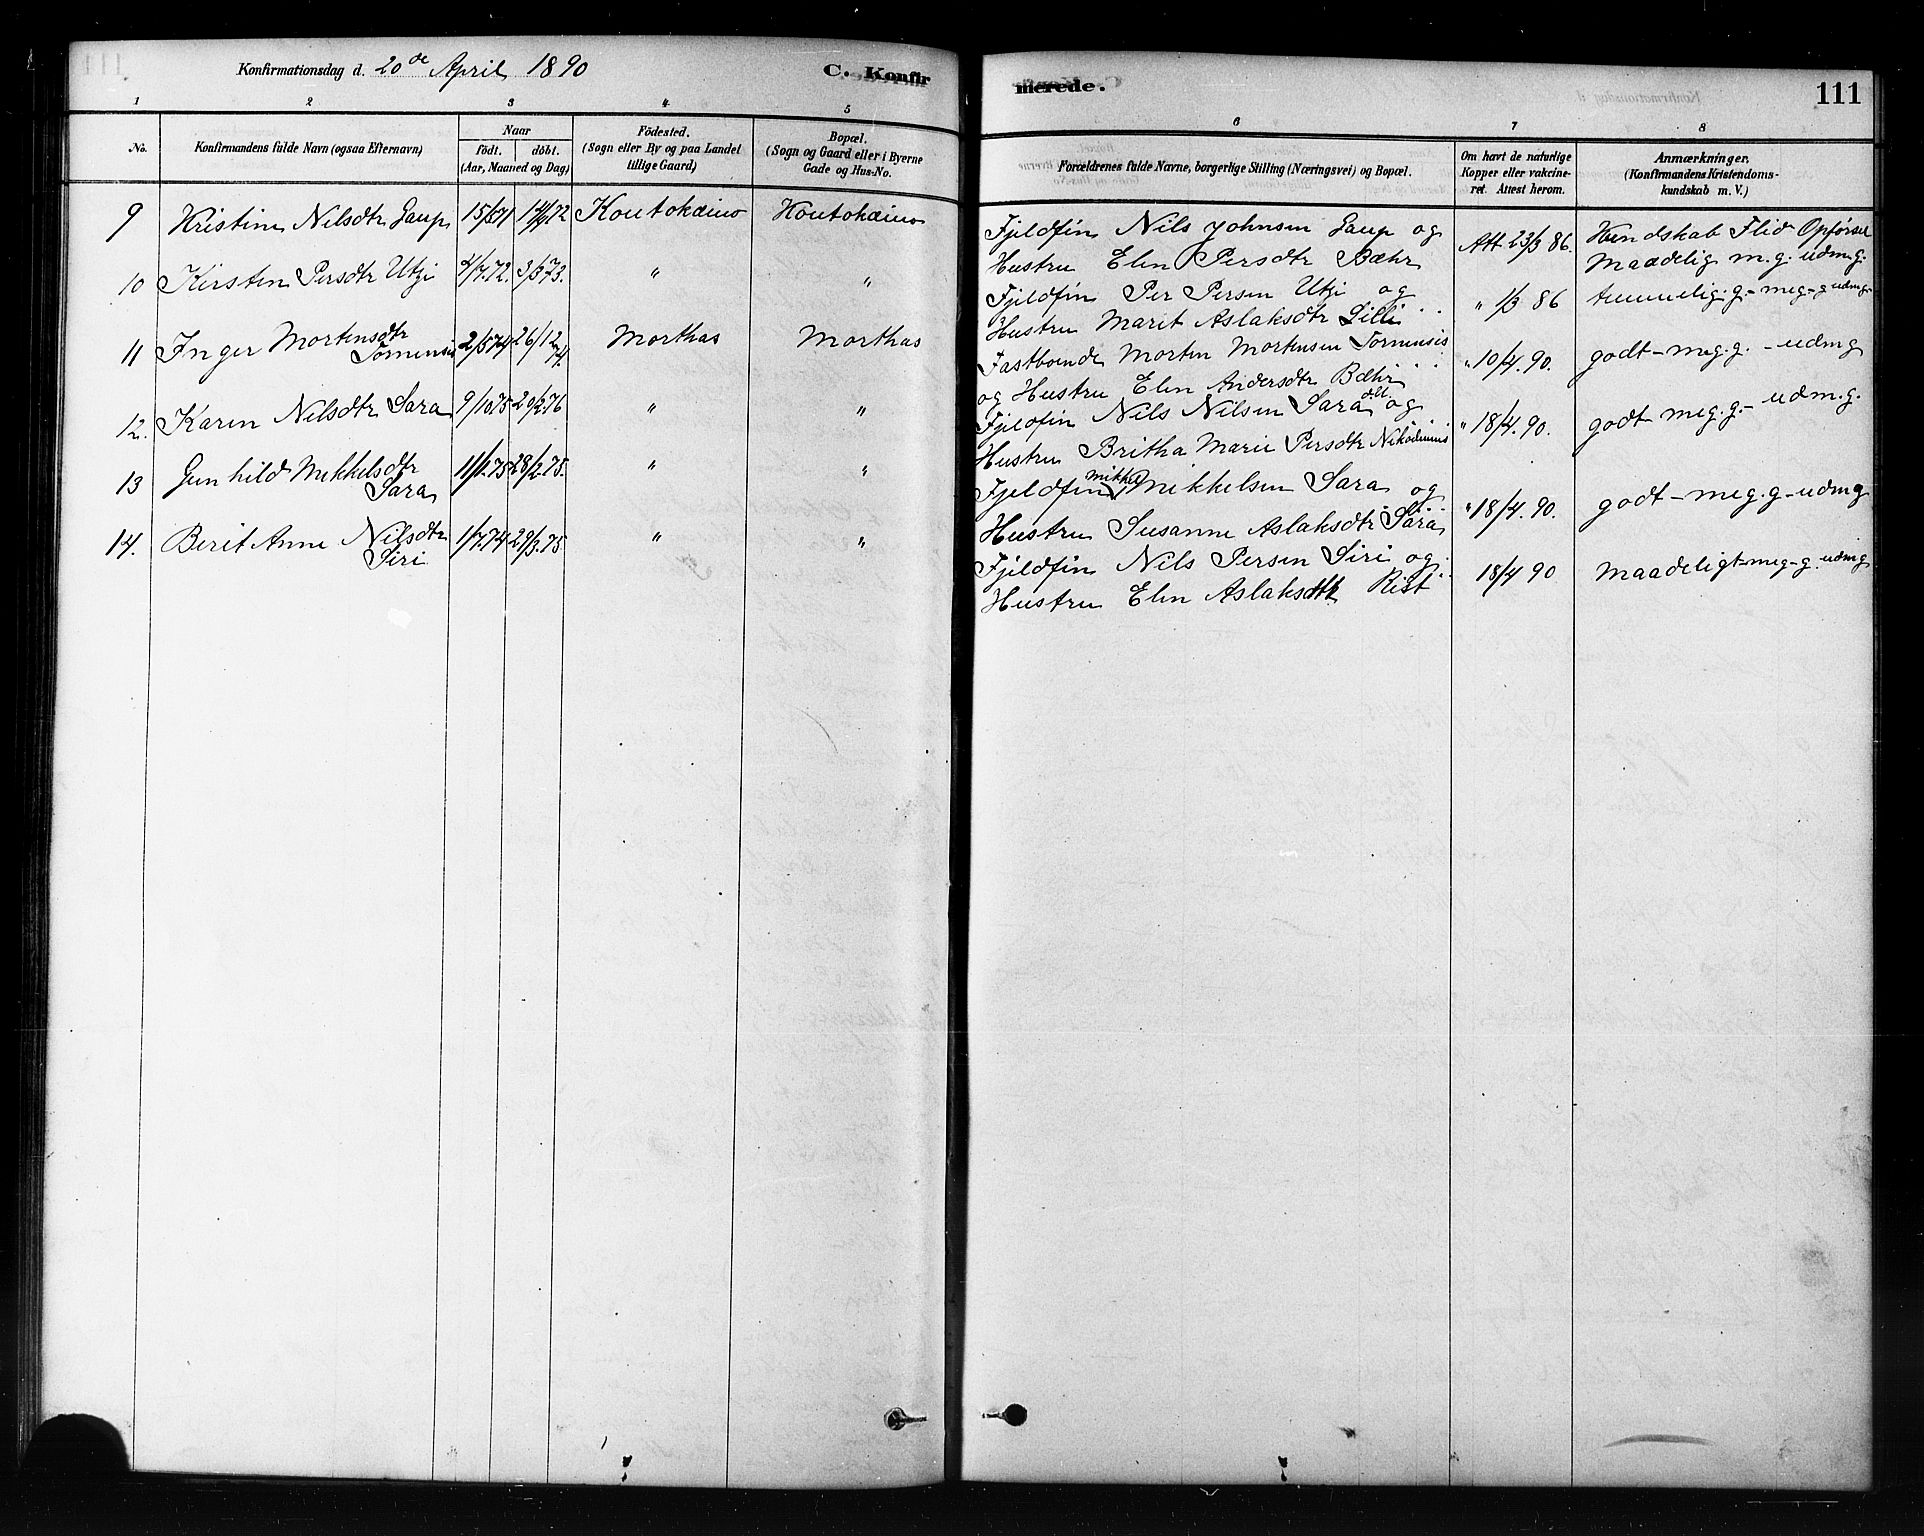 Konfirmationsdag d. 20de April 1890
C. Konfirmerede.
111
1 2 3 4 5 6 7 8
No.
Konfirmandens fulde Navn (ogsaa Efternavn)
Naar
födt. döbt.
(Aar, Maaned og Dag)
Födested.
(Sogn eller By og paa Landet
tillige Gaard)
Bopæl.
(Sogn og Gaard eller i Byerne
Gade og Hus-No.
Forældrenes fulde Navne, borgerlige Stilling (Næringsvei) og Bopæl.
Om havt de naturlige
Kopper eller vakcine-
ret. Attest herom.
Anmærkninger.
(Konfirmandens Kristendoms-
kundskab m. V.)
9 Kristine Nilsdtr Gaup Koutokæino Koutokæino
Fjeldfin Nils Johnsen Gaup og
Hustru Elen Persdtr Bæhr
Att 23/3 86.
Kundskab Flid Opførsel
Maadelig m.g. udm.g.
10 Kirsten Persdtr Utzi 4/7.72. 3/3 73. " "
Fjeldfin Per Persen Utzi og
Hustru Marit Aslaksdtr Lilli
" 1/3 86
temmelig.g.- meg-g udm.g.
11 Inger Mortensdtr
Tornensis
2/5 74 26/12 74. Morthas Morthas
Fastboende Morten Mortensen Tornensis
og Hustru Elen Andersdtr Bæhr
" 10/4. 90.
godt - meg.g. - udmg
12. Karen Nilsdtr Sara 9/10 75 29/2.76 " "
Fjeldfin Nils Nilsen Sara og
Hustru Britha Marie Persdtr Nikodimus
" 18/4. 90.
godt meg.g.- udm.g.
13 Gunhild Mikkelsdtr
Sara
11/1.75 28/2.75. " "
Fjeldfin Mikkel Mikkelsen Sara og
Hustru Susanne Aslaksdtr Sara
" 18/4. 90.
godt - meg.g-udmg
14. Berit Anne Nilsdtr
Siri
1/7.74 29/3.75. " "
Fjeldfin Nils Persen Siri og
Hustru Elen Aslaksdtr Rist
18/4 90
maadeligt-meg-g. udmg